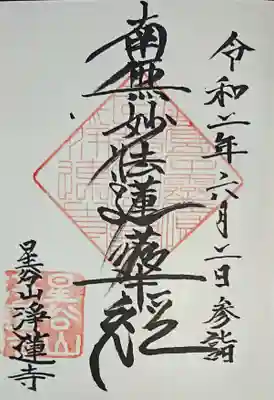 令和二年六月二日参詣
南無妙法蓮華経
星谷山浄蓮寺
星谷山